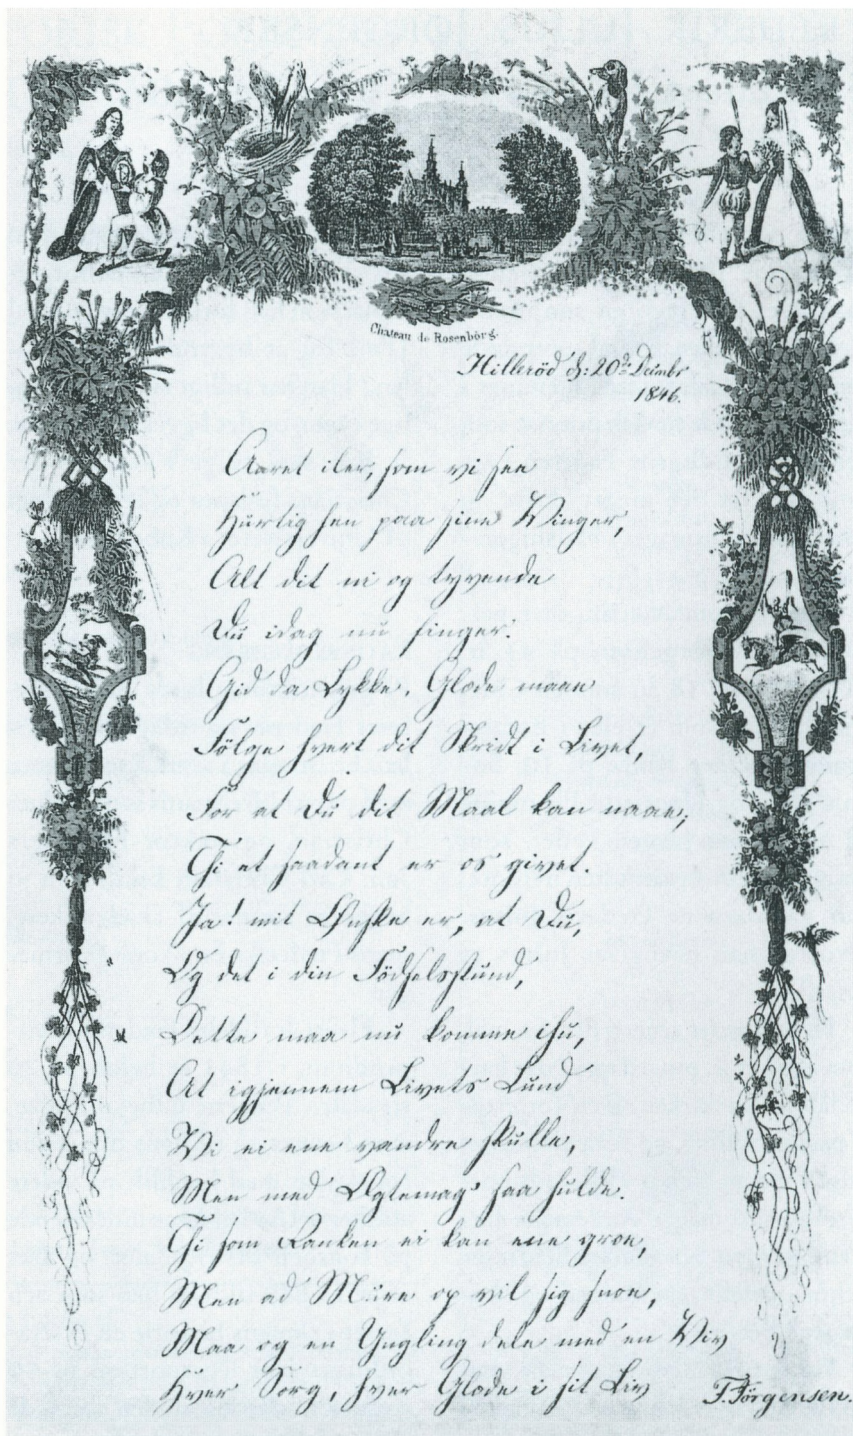 Chateau de Rosenborg.
Hilleröd d: 20de Decmbr
1846.
Aaret iler, som vi see
Hurtig hen paa sine Vinger,
Alt dit ni og tyvende
Du idag nu finger.
Gid da Lykke, Glæde maae
Fölge hvert dit Skridt i Livet,
For at Du dit Maal kan naae;
Thi et saadant er os givet.
Ja! mit Ønske er, at Du,
Og det i din Födselsstund,
Dette maa nu komme ihu,
At igjennem Livets Lund
Vi ei ene vandre skulle,
Men med Ægtemag' saa hulde.
Thi som Ranken ei kan ene groe,
Men ad Mure op vil sig snoe,
Maa og en Yngling dele med en Viv
Hver Sorg, hver Glæde i sit Liv
T. Jörgensen.